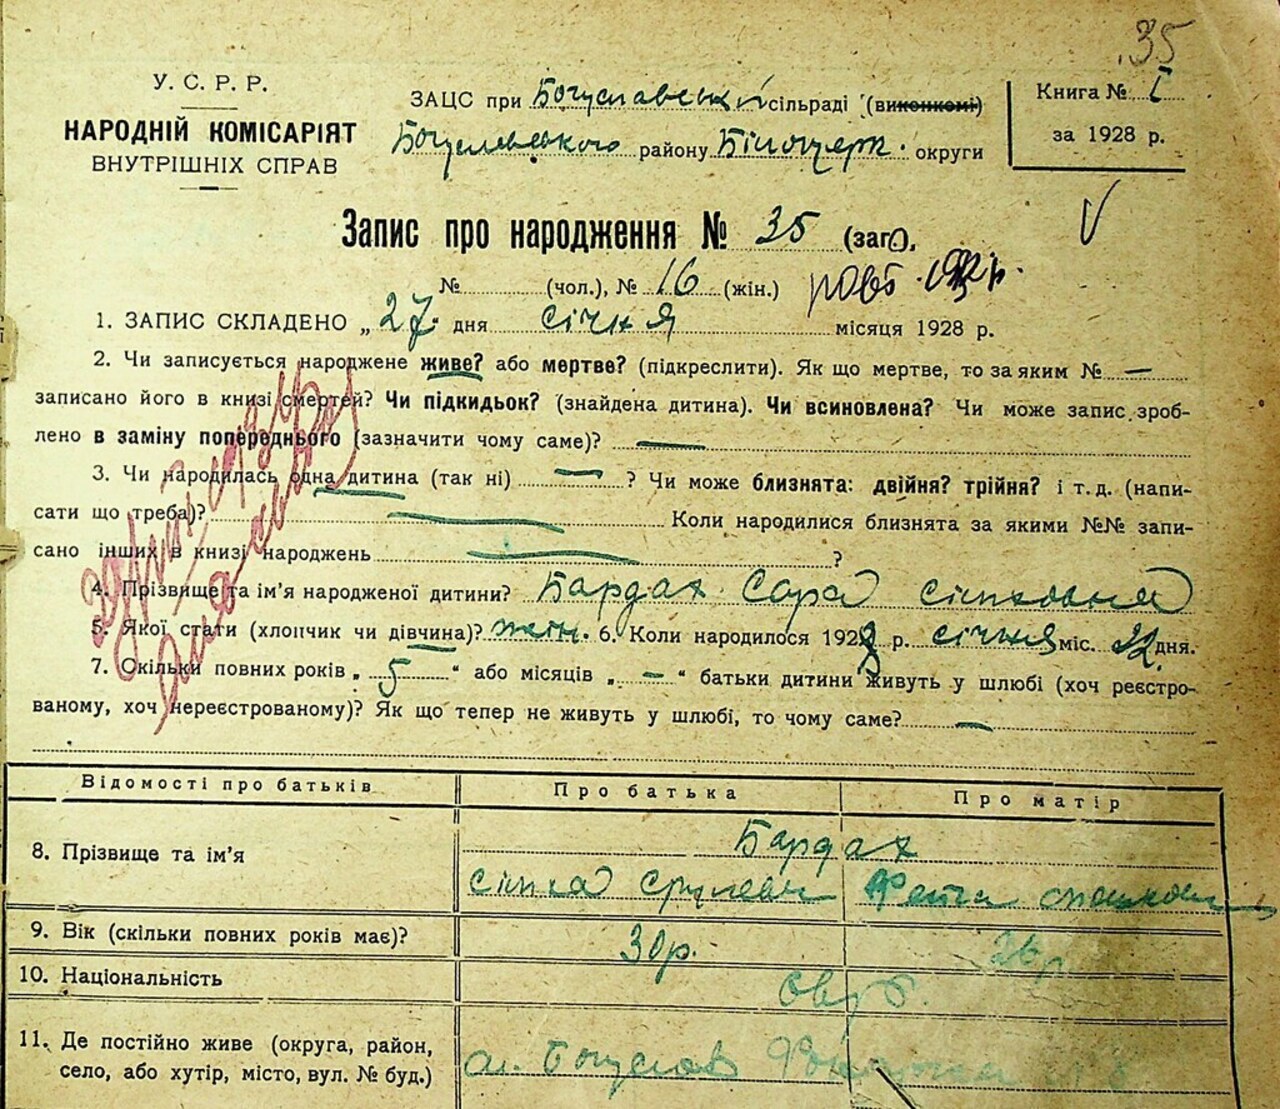 35
У. С. Р. Р.
НАРОДНІЙ КОМІСАРІЯТ
ВНУТРІШНІХ СПРАВ
ЗАЦС при Богуславській сільраді (виконкомі)
Богуславського району Білоцерк. округи
Книга № I
за 1928 р.
Запис про народження № 35 (заг.),
№ (чол.), № 16 (жін.)
1. ЗАПИС СКЛАДЕНО „27" дня січня місяця 1928 р.
2. Чи записується народжене живе? або мертве? (підкреслити). Як що мертве, то за яким № —
записано його в книзі смертей? Чи підкидьок? (знайдена дитина). Чи всиновлена? Чи може запис зроб-
лено в заміну попереднього (зазначити чому саме)? —
3. Чи народилась одна дитина (так ні) — ? Чи може близнята: двійня? трійня? і т. д. (напи-
сати що треба)? — Коли народилися близнята за якими №№ запи-
сано інших в книзі народжень — ?
4. Прізвище та ім'я народженої дитини? Бардах Сора
5. Якої стати (хлопчик чи дівчина)? жін. 6. Коли народилось 1928 р. січня міс. 22 дня.
7. Скільки повних років „ 5 " або місяців „ — " батьки дитини живуть у шлюбі (хоч реєстро-
ваному, хоч нереєстрованому)? Як що тепер не живуть у шлюбі, то чому саме? —
Відомості про батьків Про батька Про матір
8. Прізвище та ім'я Бардах
9. Вік (скільки повних років має)? 30р. 26р.
10. Національність євр.
11. Де постійно живе (округа, район,
село, або хутір, місто, вул. № буд.) м. Богуслав